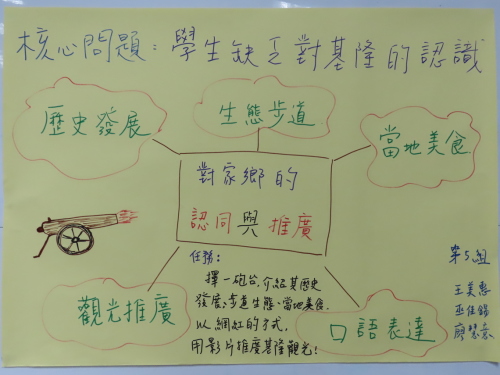 核心問題：學生缺乏對基隆的認識
歷史發展
生態步道
當地美食
對家鄉的
認同與推廣
觀光推廣
口語表達
任務：
擇一砲台，介紹其歷史
發展、步道生態、當地美食.
以網紅的方式，
用影片推廣基隆觀光！
第5組
王美惠
巫佳錦
廖慧